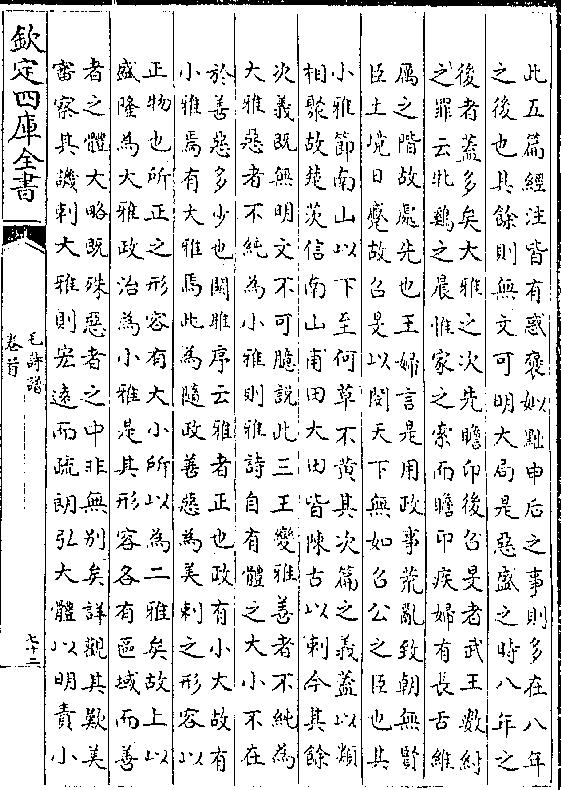 此五篇經注皆有惑褒姒黜申后之事則多在八年
之後也其餘則無文可明大局是惡盛之時八年之
後者蓋多矣大雅之次先瞻卬後召旻者武王數紂
之罪云牝雞之晨惟家之索而瞻卬疾婦有長舌維
厲之階故處先也王婦言是用政事荒亂致朝無賢
臣土境日蹙故召旻以閔天下無如召公之臣也其
小雅節南山以下至何草不黃其次篇之義蓋以類
相聚故楚茨信南山甫田大田皆陳古以刺今其餘
次義既無明文不可臆說此三王變雅善者不純為
大雅惡者不純為小雅則雅詩自有體之大小不在
於善惡多少也關雎序云雅者正也政有小大故有
小雅焉有大雅焉此為隨政善惡為美刺之形容以
正物也所正之形容有大小所以為二雅矣故上以
盛隆為大雅政治為小雅是其形容各有區域而善
者之體大略既殊惡者之中非無別矣詳觀其歎美
審察其譏刺大雅則宏遠而疏朗弘大體以明責小
欽定四庫全書
毛詩譜
卷首
七十二